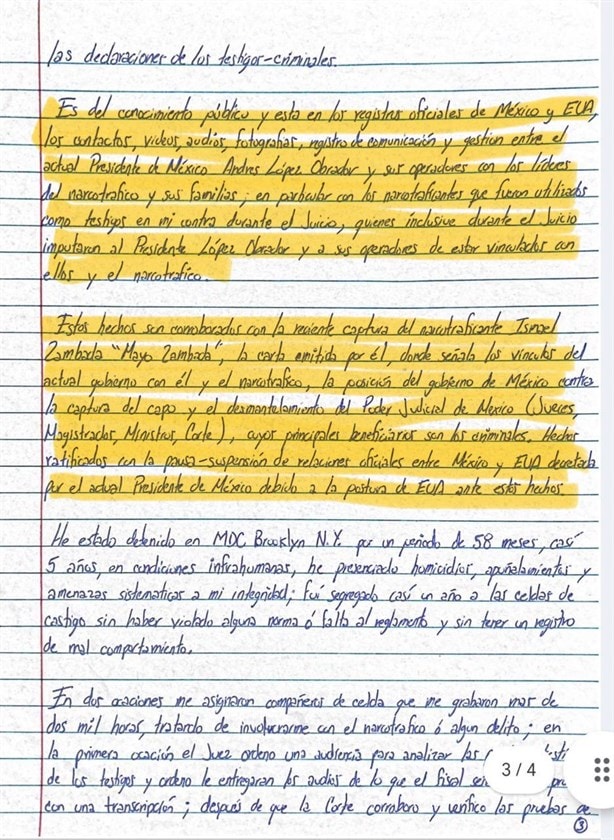 las declaraciones de los testigos-criminales.
Es del conocimiento público y esta en los registros oficiales de México y EUA,
los contactos, videos, audios, fotografías, registro de comunicación y gestion entre el
actual Presidente de México Andres López Obrador y sus operadores con los líderes
del narcotrafico y sus familias; en particular con los narcotraficantes que fueron utilizados
como testigos en mi contra durante el Juicio, quienes inclusive durante el Juicio
imputaron al Presidente López Obrador y a sus operadores de estar vinculados con
ellos y el narcotrafico.
Estos hechos son corroborados con la reciente captura del narcotraficante Ismael
Zambada "Mayo Zambada", la carta emitida por él, donde señala los vínculos del
actual gobierno con él y el narcotrafico, la posición del gobierno de México contra
la captura del capo y el desmantelamiento del Poder Judicial de Mexico (Jueces,
Magistrados, Ministros, Corte), cuyos principales beneficiarios son los criminales. Hechos
ratificados con la pausa-suspensión de relaciones oficiales entre México y EUA decretada
por el actual Presidente de México debido a la postura de EUA ante estos hechos.
He estado detenido en MDC Brooklyn N.Y. por un periodo de 58 meses, casí
5 años, en condiciones infrahumanas, he presenciado homicidios, apuñalamientos y
amenazas sistematicas a mi integridad; fui segregado casí un año a las celdas de
castigo sin haber violado alguna norma ó falta al reglamento y sin tener un registro
de mal comportamiento.
En dos ocaciones me asignaron compañeros de celda que me grabaron mas de
dos mil horas, tratando de involucrarme con el narcotrafico ó algun delito; en
la primera ocación el Juez ordeno una audiencia para analizar las
de los testigos y ordeno le entregaran los audios de lo que el fiscal
con una transcripción; después de que la Corte corroboro y verifico las pruebas de
3 / 4
3